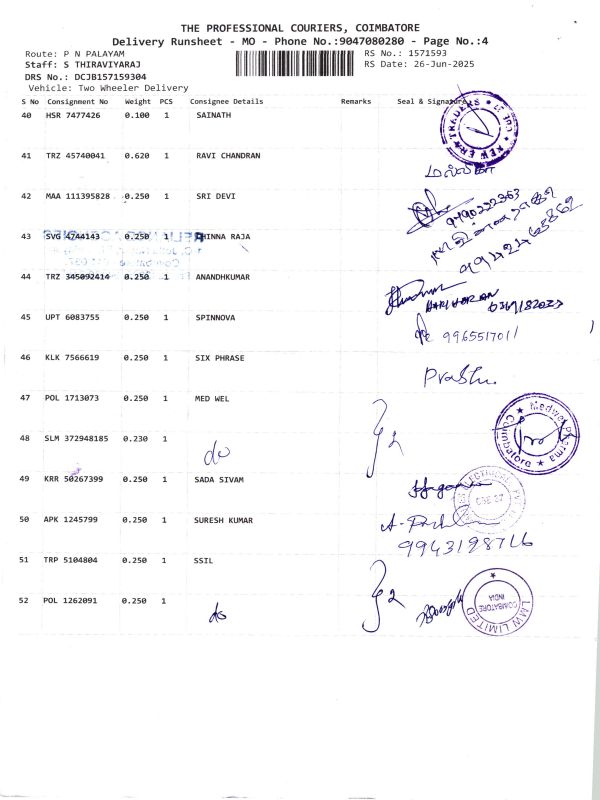 THE PROFESSIONAL COURIERS, COIMBATORE
Delivery Runsheet - MO - Phone No.:9047080280 - Page No.:4
Route: P N PALAYAM
RS No.: 1571593
Staff: S THIRAVIYARAJ
RS Date: 26-Jun-2025
DRS No.: DCJB157159304
Vehicle: Two Wheeler Delivery
S No Consignment No Weight PCS Consignee Details Remarks Seal & Signature
40 HSR 7477426 0.100 1 SAINATH
NEW ERA TRADERS CBE
41 TRZ 45740041 0.620 1 RAVI CHANDRAN
மல்லிகா
42 MAA 111395828 0.250 1 SRI DEVI
9790222363
43 SVG 4744143 0.250 1 CHINNA RAJA
44 TRZ 345092414 0.250 1 ANANDHKUMAR
HARIHARAN
45 UPT 6083755 0.250 1 SPINNOVA
9965517011
46 KLK 7566619 0.250 1 SIX PHRASE
Prabhu.
47 POL 1713073 0.250 1 MED WEL
} 2
Medwel Pharma Coimbatore
48 SLM 372948185 0.230 1
do
49 KRR 50267399 0.250 1 SADA SIVAM
50 APK 1245799 0.250 1 SURESH KUMAR
9943198766
51 TRP 5104804 0.250 1 SSIL
} 2
LMW LIMITED COIMBATORE INDIA
52 POL 1262091 0.250 1
do